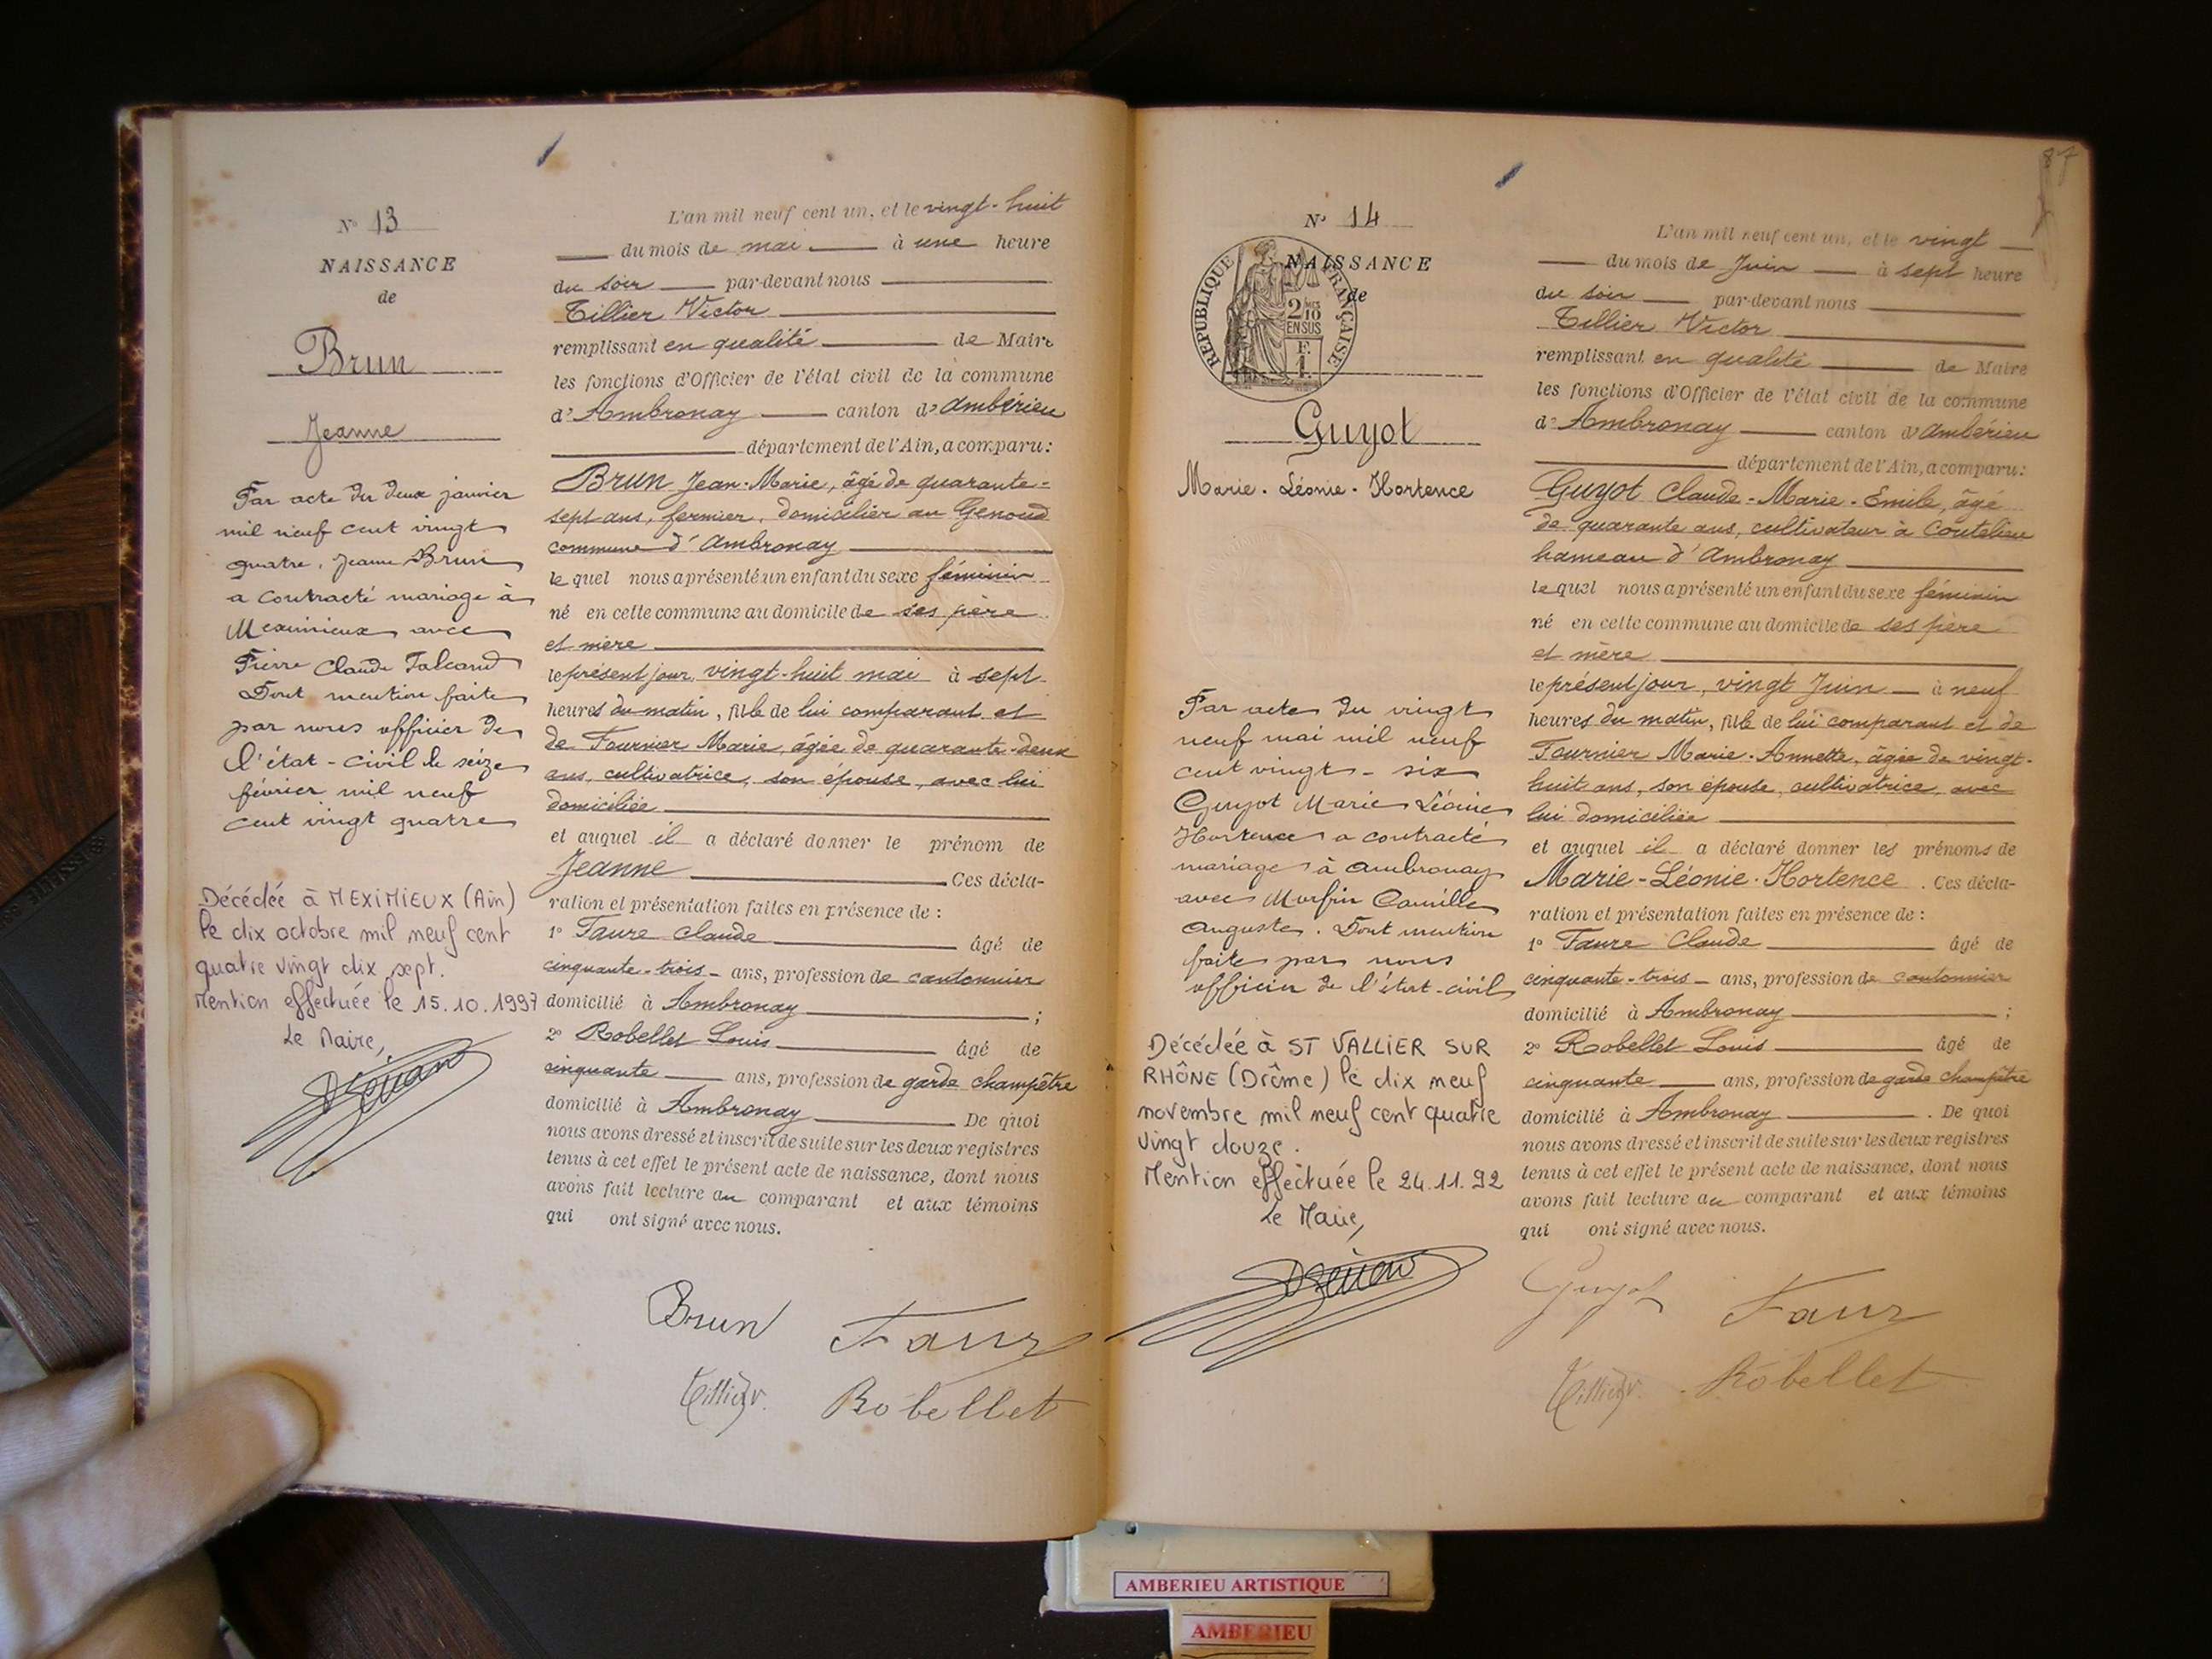 N° 13
NAISSANCE
de
Brun
Jeanne
Par acte du deux janvier
mil neuf cent vingt
quatre, Jeanne Brun
a contracté mariage à
Meximieux avec
Pierre Claude Falcand
Dont mention faite
par nous officier de
l'état-civil le seize
février mil neuf
cent vingt quatre
Décédée à MEXIMIEUX (Ain)
le dix octobre mil neuf cent
quatre vingt dix sept.
Mention effectuée le 15.10.1997
Le Maire,
L'an mil neuf cent un, et le vingt-huit
du mois de mai à une heure
du soir par-devant nous
Tillier Victor
remplissant en qualité de Maire
les fonctions d'Officier de l'état civil de la commune
d'Ambronay canton d'Ambérieu
département de l'Ain, a comparu:
Brun Jean-Marie, âgé de quarante-
sept ans, fermier, domicilier au Genoud
commune d'Ambronay
lequel nous a présenté un enfant du sexe féminin
né en cette commune au domicile de ses père
et mère
le présent jour, vingt-huit mai à sept
heures du matin, fille de lui comparant et
de Fournier Marie, âgée de quarante-deux
ans, cultivatrice, son épouse, avec lui
domiciliée
et auquel il a déclaré donner le prénom de
Jeanne Ces décla-
ration et présentation faites en présence de :
1° Faure Claude âgé de
cinquante-trois ans, profession de cantonnier
domicilié à Ambronay ;
2° Robellet Louis âgé de
cinquante ans, profession de garde champêtre
domicilié à Ambronay De quoi
nous avons dressé et inscrit de suite sur les deux registres
tenus à cet effet le présent acte de naissance, dont nous
avons fait lecture au comparant et aux témoins
qui ont signé avec nous.
Brun Faure
Tillier Robellet
87
N° 14
NAISSANCE
de
REPUBLIQUE FRANÇAISE
2/10 EN SUS
F. 1.
Guyot
Marie-Léonie-Hortence
Par acte du vingt
neuf mai mil neuf
cent vingt-six
Guyot Marie Léonie
Hortence a contracté
mariage à Ambronay
avec Morfin Camille
Auguste. Dont mention
faite par nous
officier de l'état-civil
Décédée à ST VALLIER SUR
RHÔNE (Drôme) le dix neuf
novembre mil neuf cent quatre
vingt douze.
Mention effectuée le 24.11.92
Le Maire,
L'an mil neuf cent un, et le vingt
du mois de Juin à sept heure
du soir par-devant nous
Tillier Victor
remplissant en qualité de Maire
les fonctions d'Officier de l'état civil de la commune
d'Ambronay canton d'Ambérieu
département de l'Ain, a comparu:
Guyot Claude-Marie-Emile, âgé
de quarante ans, cultivateur à Coutelieu
hameau d'Ambronay
lequel nous a présenté un enfant du sexe féminin
né en cette commune au domicile de ses père
et mère
le présent jour, vingt Juin à neuf
heures du matin, fille de lui comparant et de
Fournier Marie-Annette, âgée de vingt-
huit ans, son épouse, cultivatrice, avec
lui domiciliée
et auquel il a déclaré donner les prénoms de
Marie-Léonie-Hortence. Ces décla-
ration et présentation faites en présence de :
1° Faure Claude âgé de
cinquante-trois ans, profession de cantonnier
domicilié à Ambronay ;
2° Robellet Louis âgé de
cinquante ans, profession de garde champêtre
domicilié à Ambronay. De quoi
nous avons dressé et inscrit de suite sur les deux registres
tenus à cet effet le présent acte de naissance, dont nous
avons fait lecture au comparant et aux témoins
qui ont signé avec nous.
Guyot Faure
Tillier Robellet
AMBERIEU ARTISTIQUE
AMBERIEU